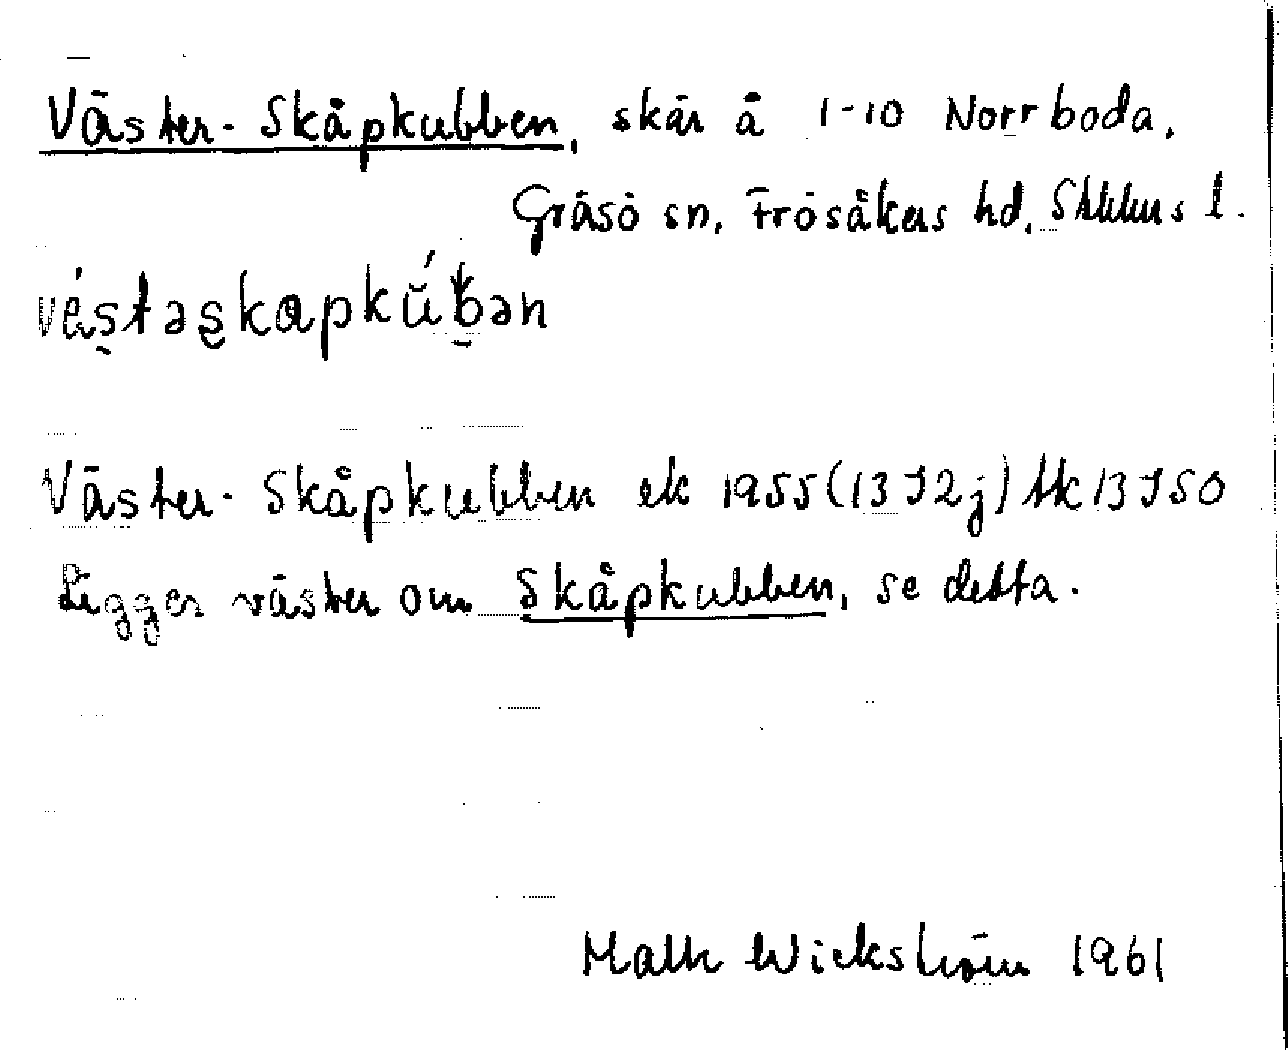 Väster-Skåpkubben, skär å 1-10 Norrboda,
Gräsö sn, Frösåkers hd, Sthlms l.
Väster-Skåpkubben ek 1955 (13 I 2 j) bk 13 I SO
Ligger väster om Skåpkubben, se detta.
Wickström 1961